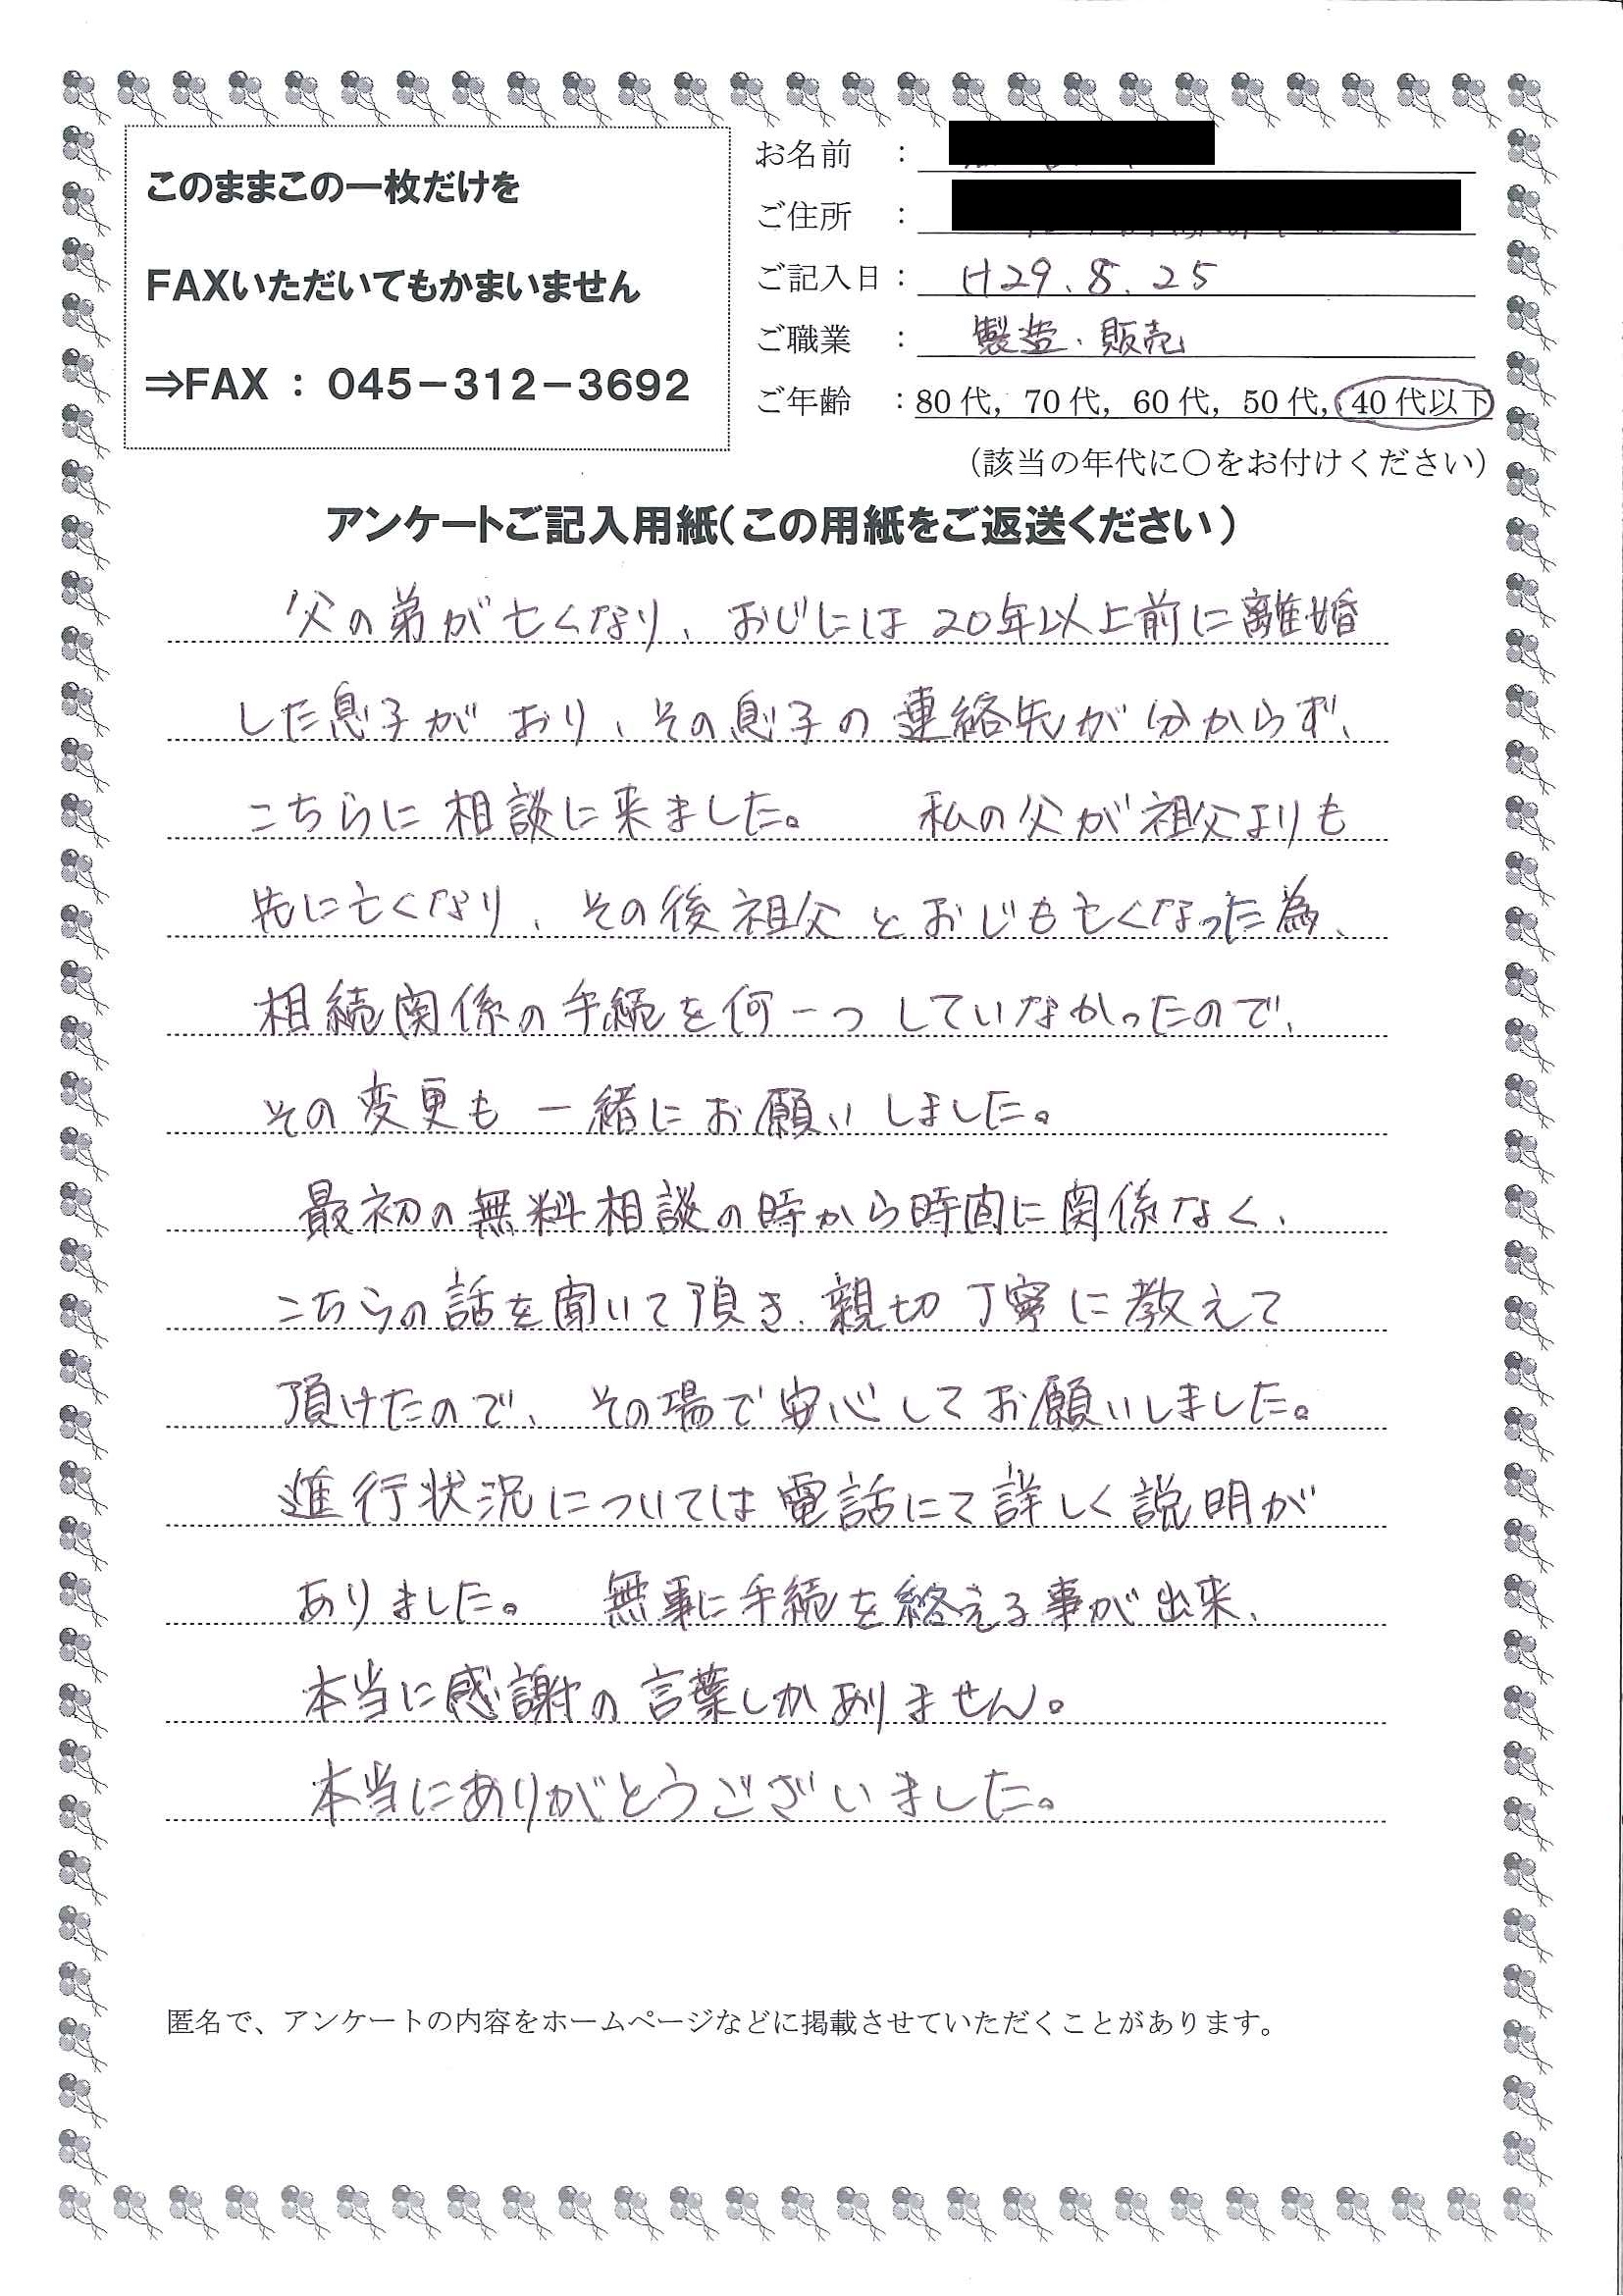 このままこの一枚だけを
FAXいただいてもかまいません
⇒FAX：045－312－3692
お名前　：
ご住所　：
ご記入日：H29.8.25
ご職業　：製造、販売
ご年齢　：80代，70代，60代，50代，40代以下
（該当の年代に〇をお付けください）
アンケートご記入用紙（この用紙をご返送ください）
父の弟が亡くなり、おじには20年以上前に離婚
した息子がおり、その息子の連絡先が分からず、
こちらに相談に来ました。　私の父が祖父よりも
先に亡くなり、その後祖父とおじも亡くなった為、
相続関係の手続を何一つしていなかったので、
その変更も一緒にお願いしました。
最初の無料相談の時から時間に関係なく、
こちらの話を聞いて頂き、親切丁寧に教えて
頂けたので、その場で安心してお願いしました。
進行状況については電話にて詳しく説明が
ありました。　無事に手続を終える事が出来、
本当に感謝の言葉しかありません。
本当にありがとうございました。
匿名で、アンケートの内容をホームページなどに掲載させていただくことがあります。